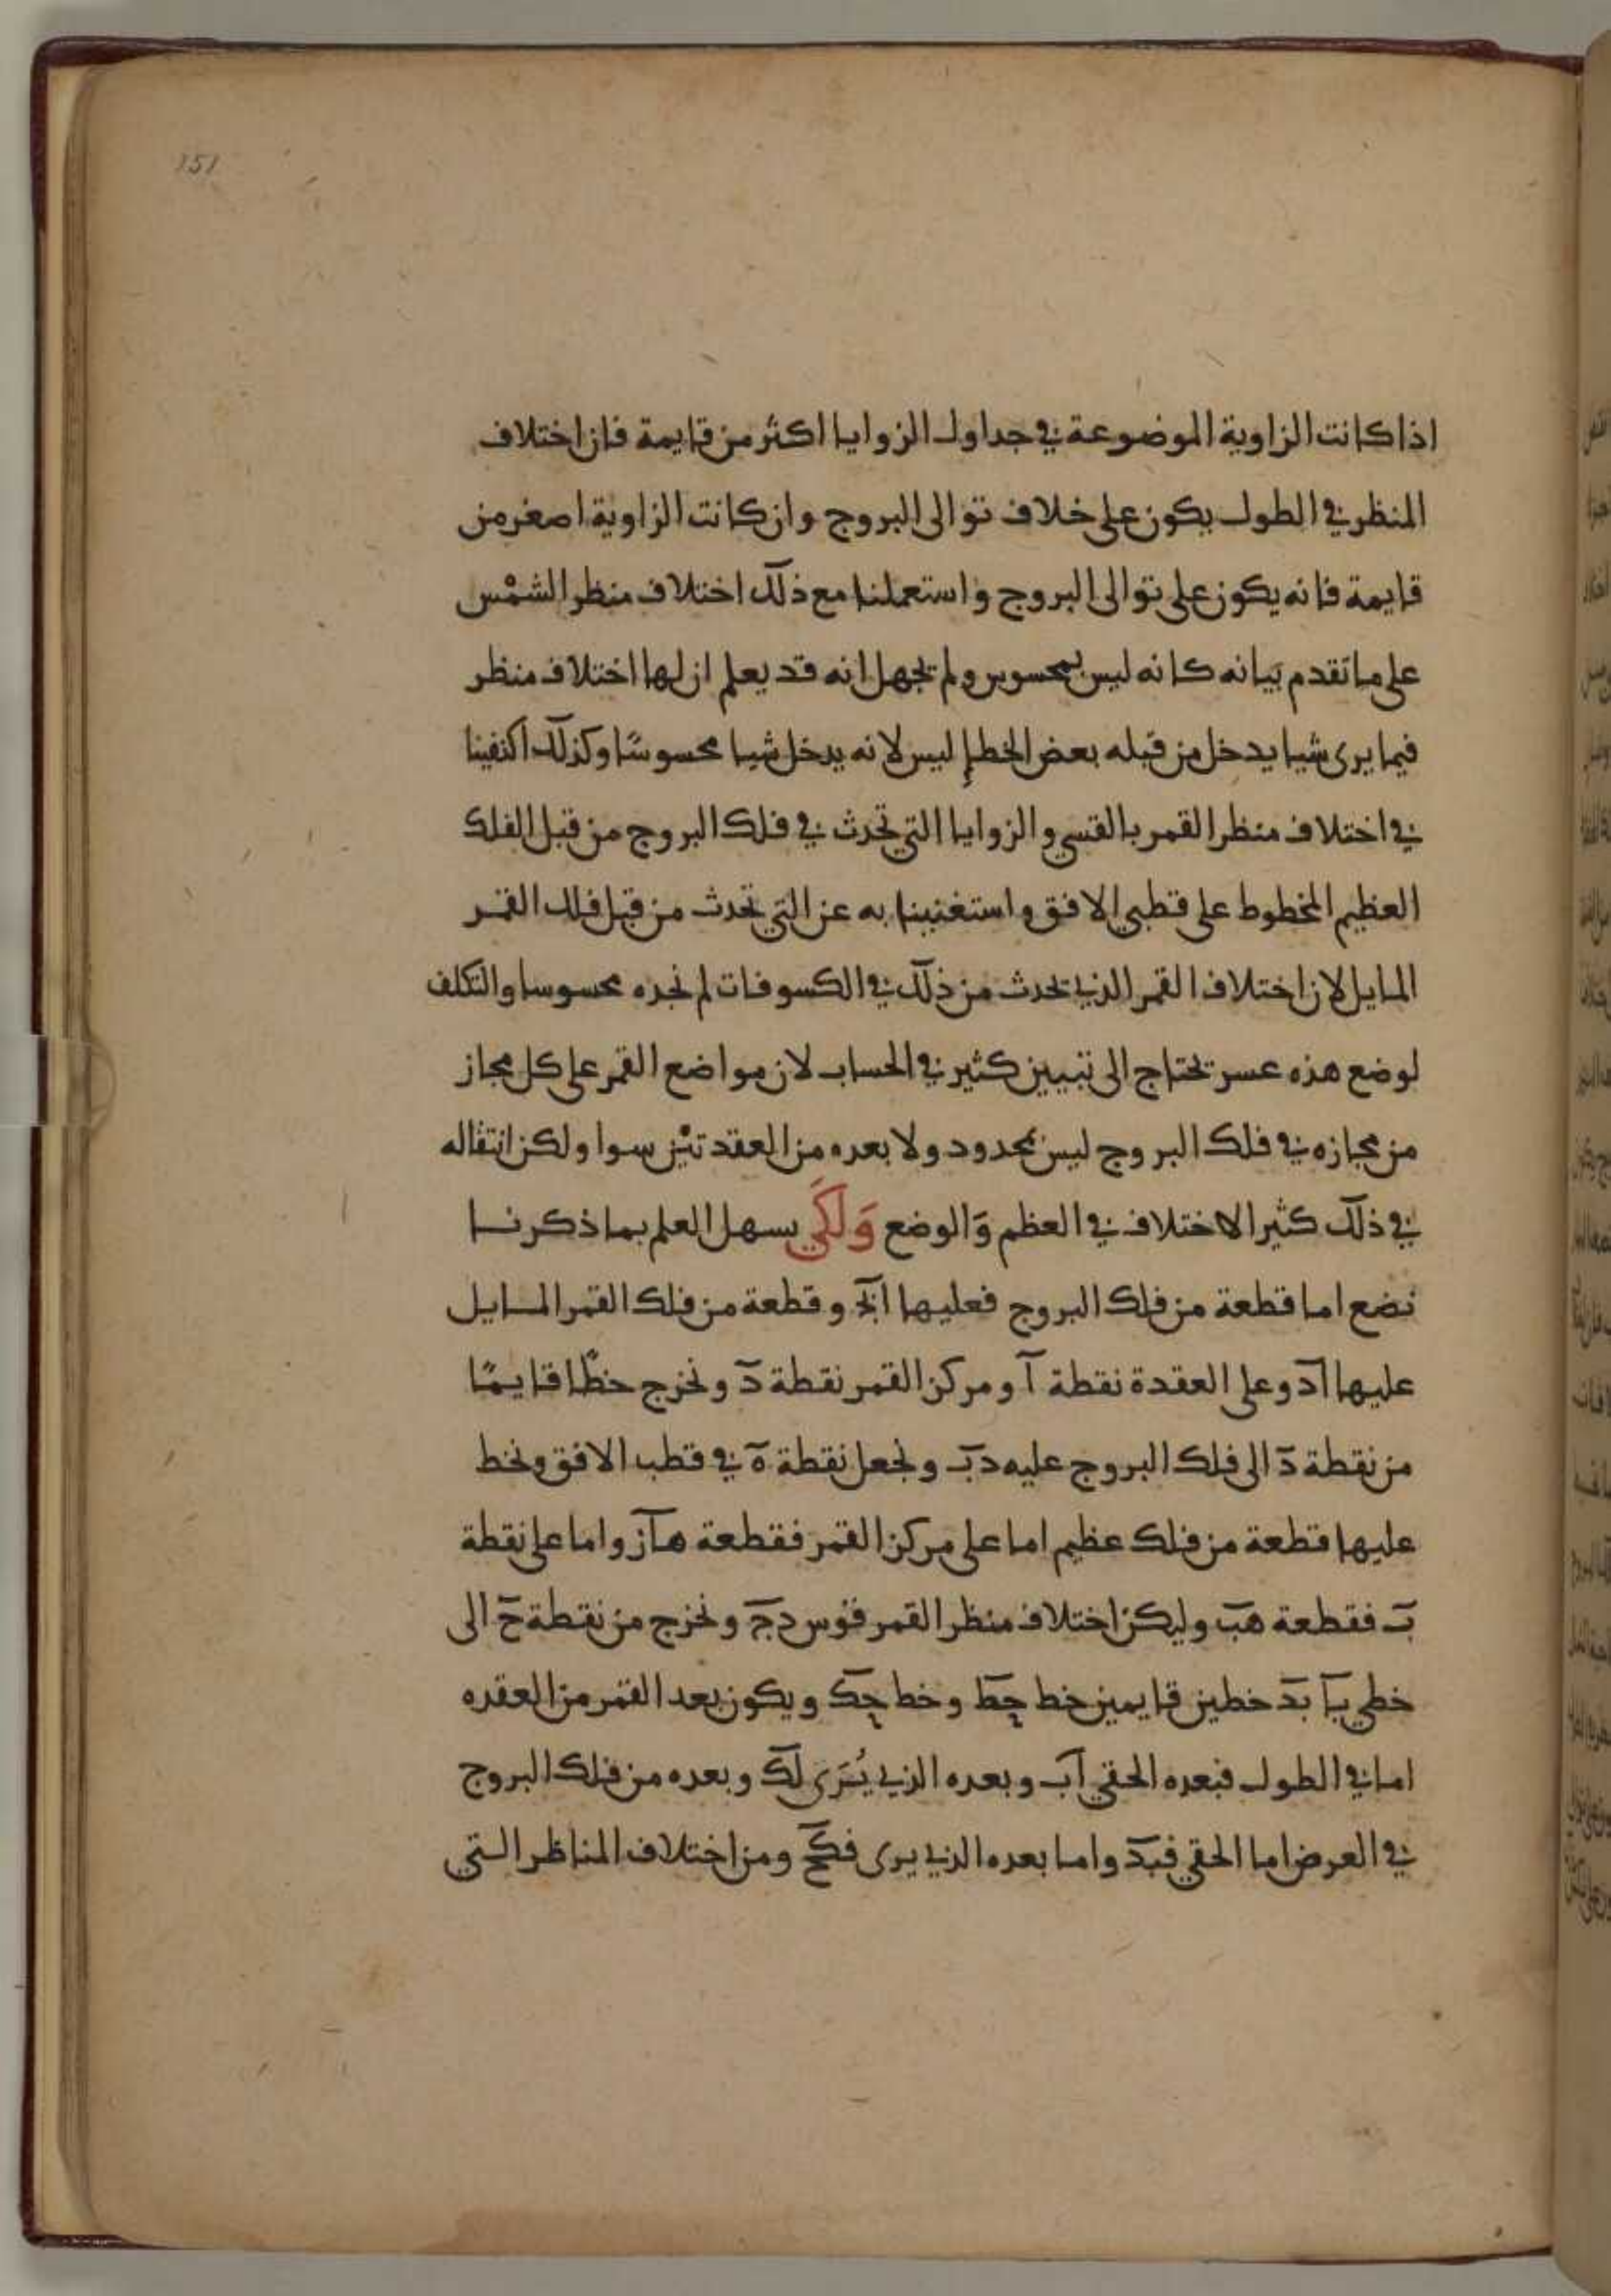 151
اذا كانت الزاوية الموضوعة في جداول الزوايا اكثر من قايمة فان اختلاف
المنظر في الطول يكون على خلاف توالى البروج وان كانت الزاوية اصغر من
قايمة فانه يكون على توالى البروج واستعملنا مع ذلك اختلاف منظر الشمْس
على ما تقدم بيانه كانه ليس بمحسوس ولم نجهل انه قد يعلم ان لها اختلاف منظر
فيما يرى شيا يدخل من قبله بعض الخطإ ليس لانه يدخل شيا محسوسًا وكذلك اكتفينا
في اختلاف منظر القمر بالقسي والزوايا التي تحدث في فلك البروج من قبل الفلك
العظيم المخطوط على قطبي الافق واستغنينا به عن التي تحدث من قبل فلك القمر
المايل لان اختلاف القمر الذي يحدث من ذلك في الكسوفات لم نجده محسوسا والتكلف
لوضع هذه عسر يحتاج الى تبيين كثير في الحساب لان مواضع القمر على كل مجاز
من مجازه في فلك البروج ليس بمحدود ولا بعده من العقدتين سوا ولكن انتقاله
في ذلك كثير الاختلاف في العظم وَالوضع وَلَكَي يسهل العلم بما ذكرنا
نضع اما قطعة من فلك البروج فعليها ابج وقطعة من فلك القمر المايل
عليها اد وعلى العقدة نقطة ا ومركز القمر نقطة د ونخرج خطًا قايمًا
من نقطة د الى فلك البروج عليه دب ونجعل نقطة ه في قطب الافق ونخط
عليها قطعة من فلك عظيم اما على مركز القمر فقطعة هاز واما على نقطة
ب فقطعة هب وليكن اختلاف منظر القمر قوس دج ونخرج من نقطة ح الى
خطي با بد خطين قايمين خط حط وخط حك ويكون بعد القمر من العقده
اما في الطول فبعده الحقي اب وبعده الذي يُرَى لك وبعده من فلك البروج
في العرض اما الحقي فبد واما بعده الذي يرى فكح ومن اختلاف المناظر التي